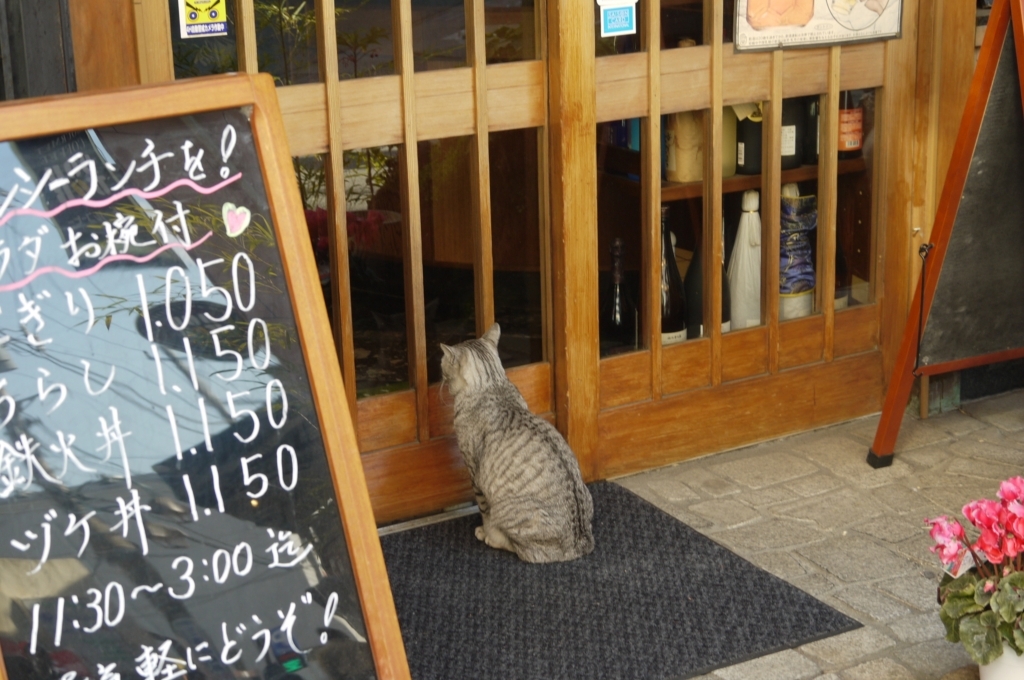 シーランチを!
ラダ お椀付
ぎり 1.050
らし 1.150
鉄火丼 1.150
ヅケ丼 1.150
11:30～3:00迄
軽にどうぞ!